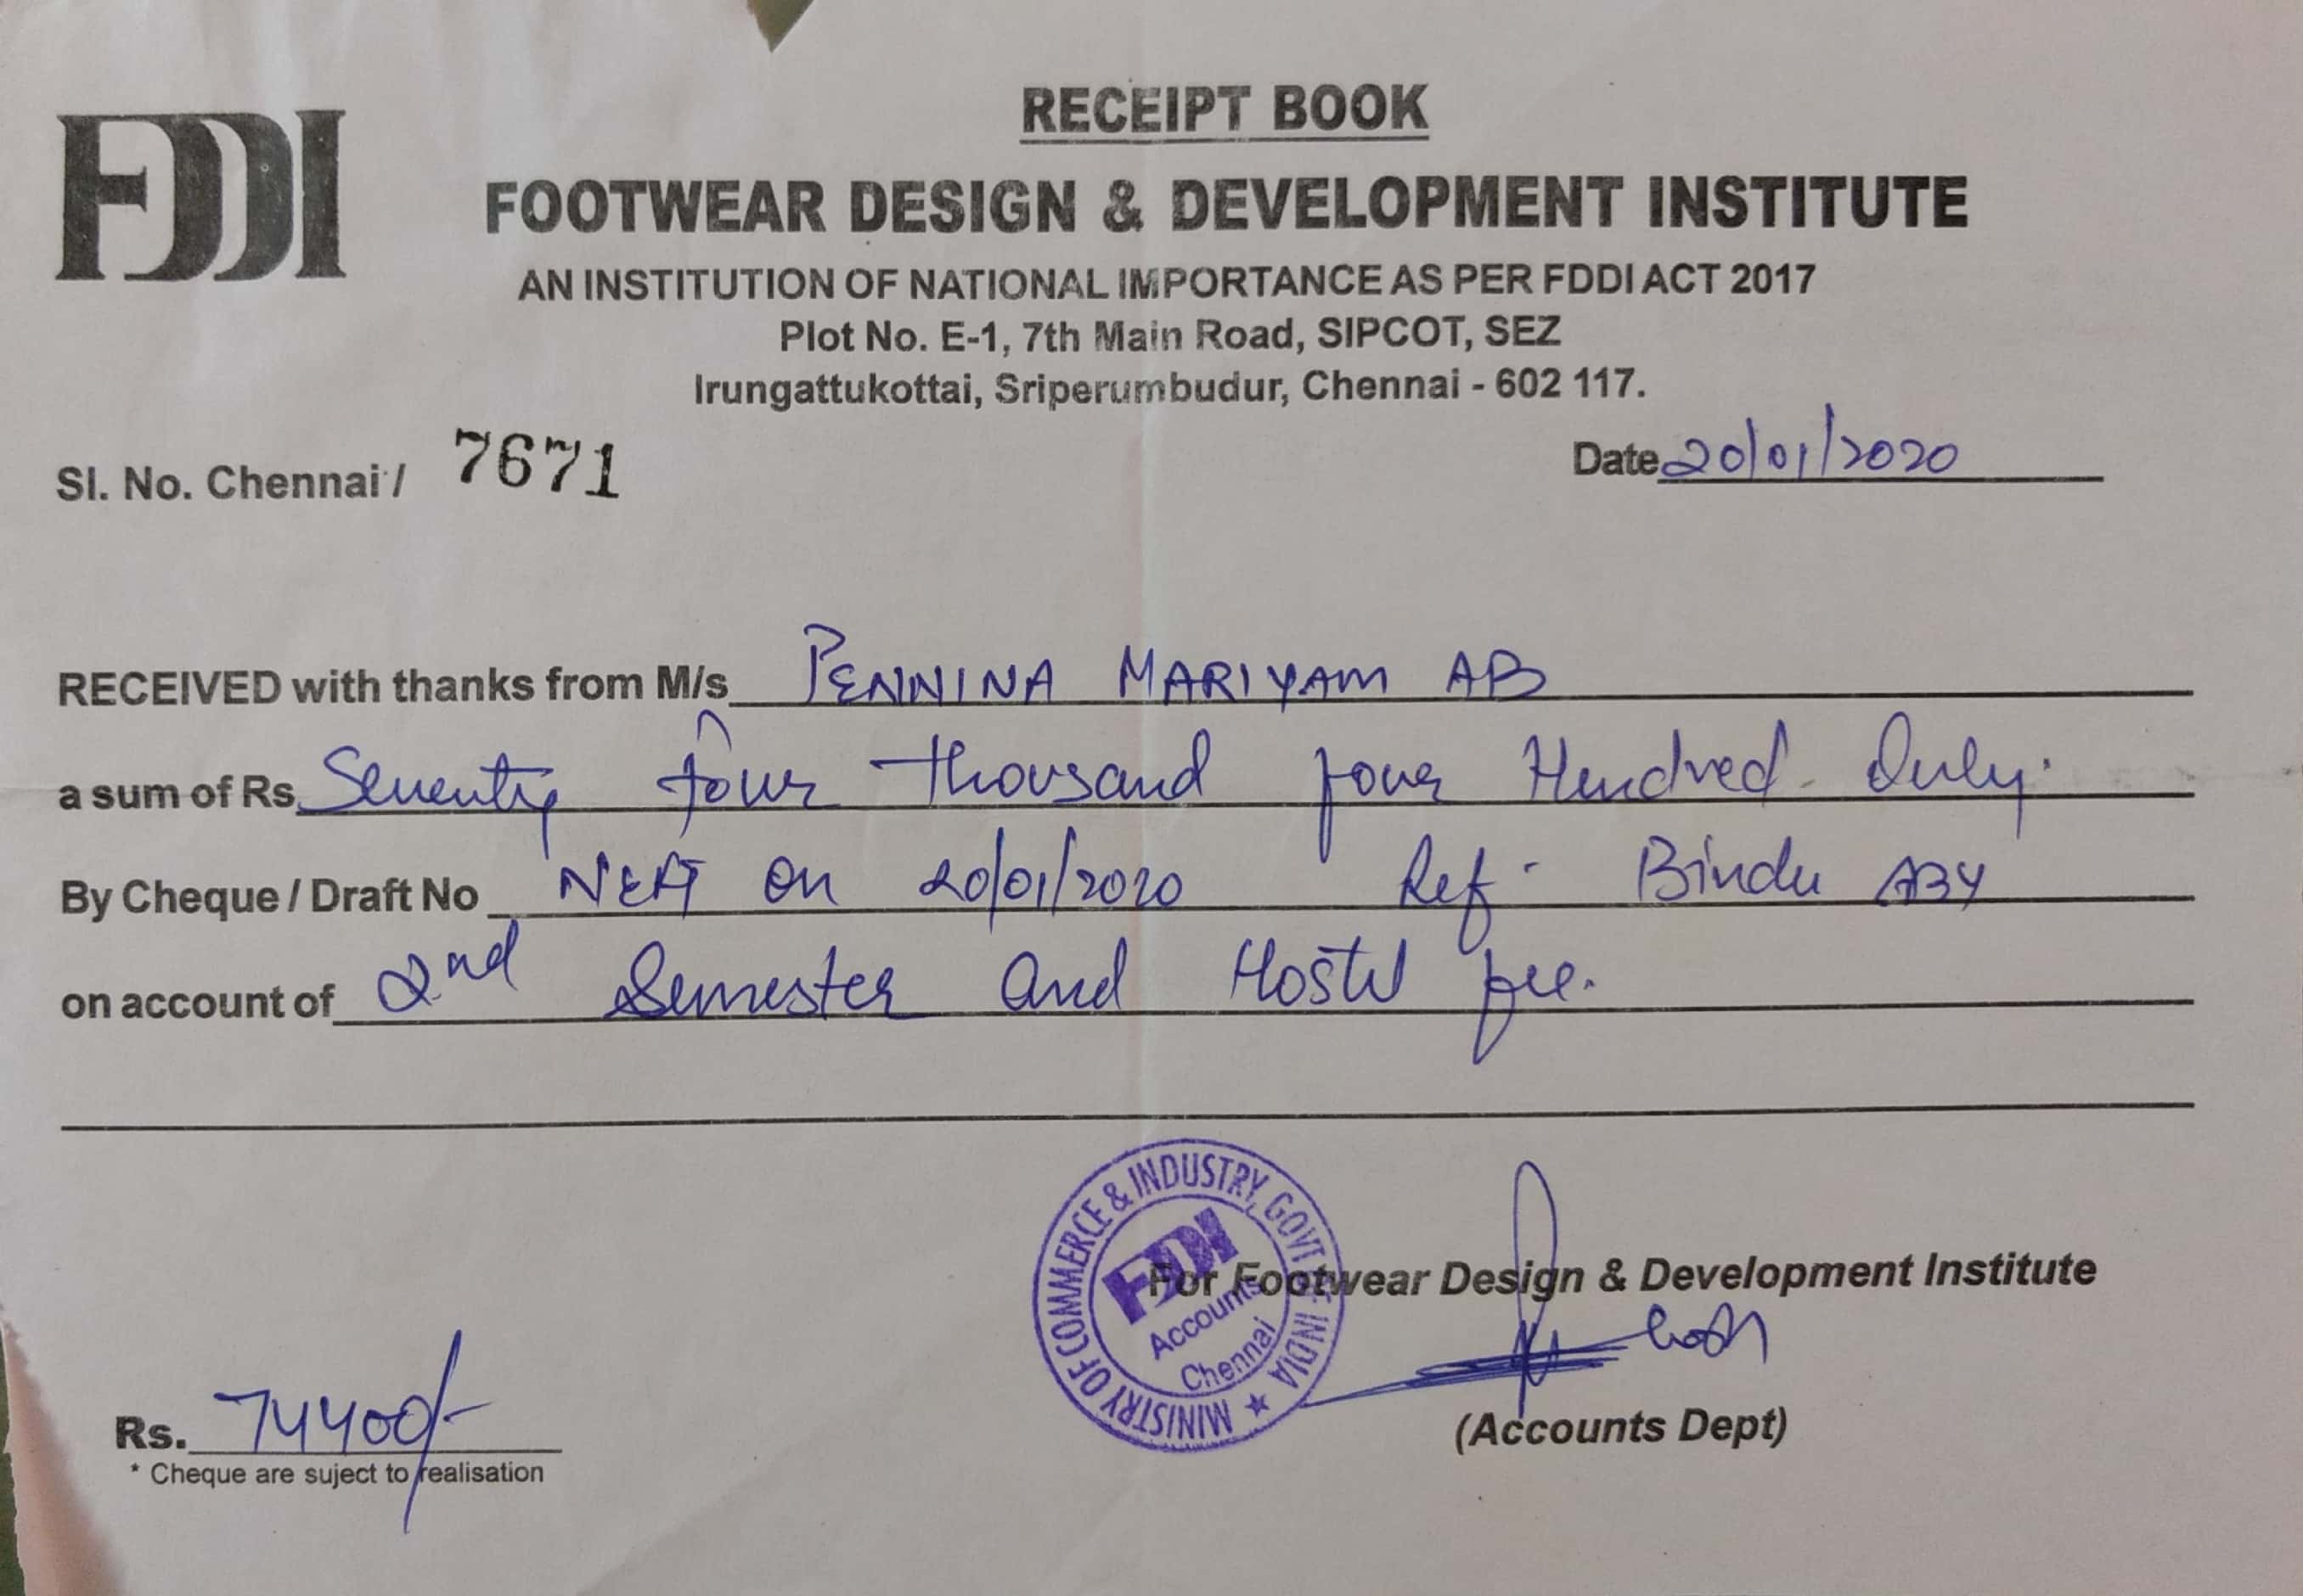 RECEIPT BOOK
FDDI
FOOTWEAR DESIGN & DEVELOPMENT INSTITUTE
AN INSTITUTION OF NATIONAL IMPORTANCE AS PER FDDI ACT 2017
Plot No. E-1, 7th Main Road, SIPCOT, SEZ
Irungattukottai, Sriperumbudur, Chennai - 602 117.
Sl. No. Chennai / 7671 Date 20/01/2020
RECEIVED with thanks from M/s PENNINA MARIYAM AB
a sum of Rs. Seventy four thousand four Hundred Only.
By Cheque / Draft No NEFT on 20/01/2020 Ref - Bindu ABY
on account of 2nd Semester and Hostel fee.
MINISTRY OF COMMERCE & INDUSTRY, GOVT OF INDIA ★
FDDI
Accounts
Chennai
For Footwear Design & Development Institute
(Accounts Dept)
Rs. 74400/-
* Cheque are suject to realisation